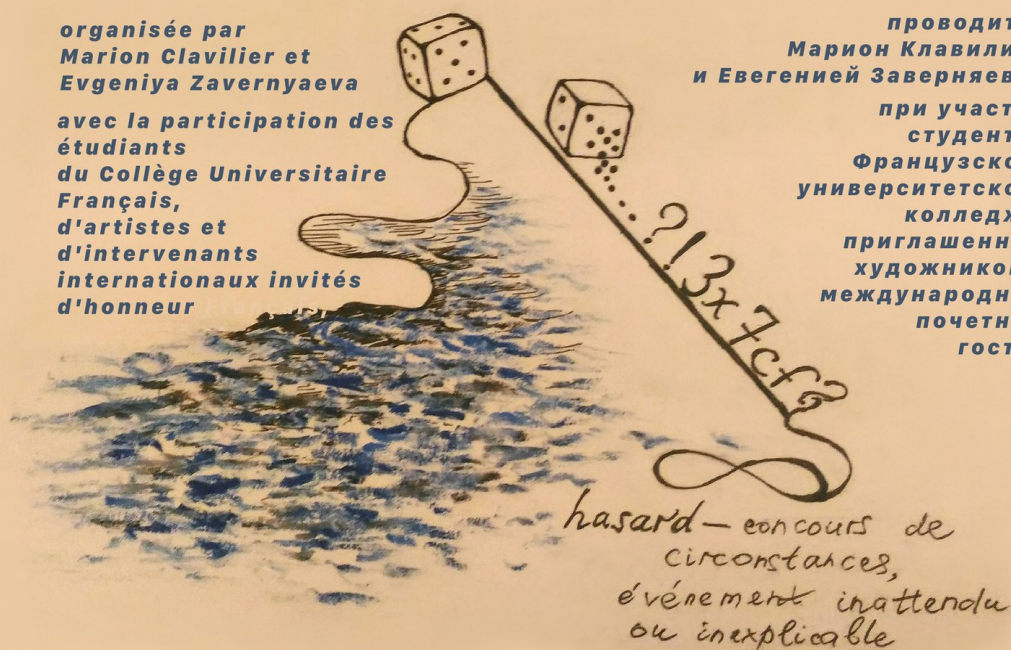 organisée par
Marion Clavilier et
Evgeniya Zavernyaeva
avec la participation des
étudiants
du Collège Universitaire
Français,
d'artistes et
d'intervenants
internationaux invités
d'honneur
проводит
Марион Клавили
и Евегенией Заверняев
при участ
студент
Французско
университетско
колледж
приглашенн
художнико
международн
почетн
гост
?!3x7cf
hasard — concours de
circonstances,
événement inattendu
ou inexplicable